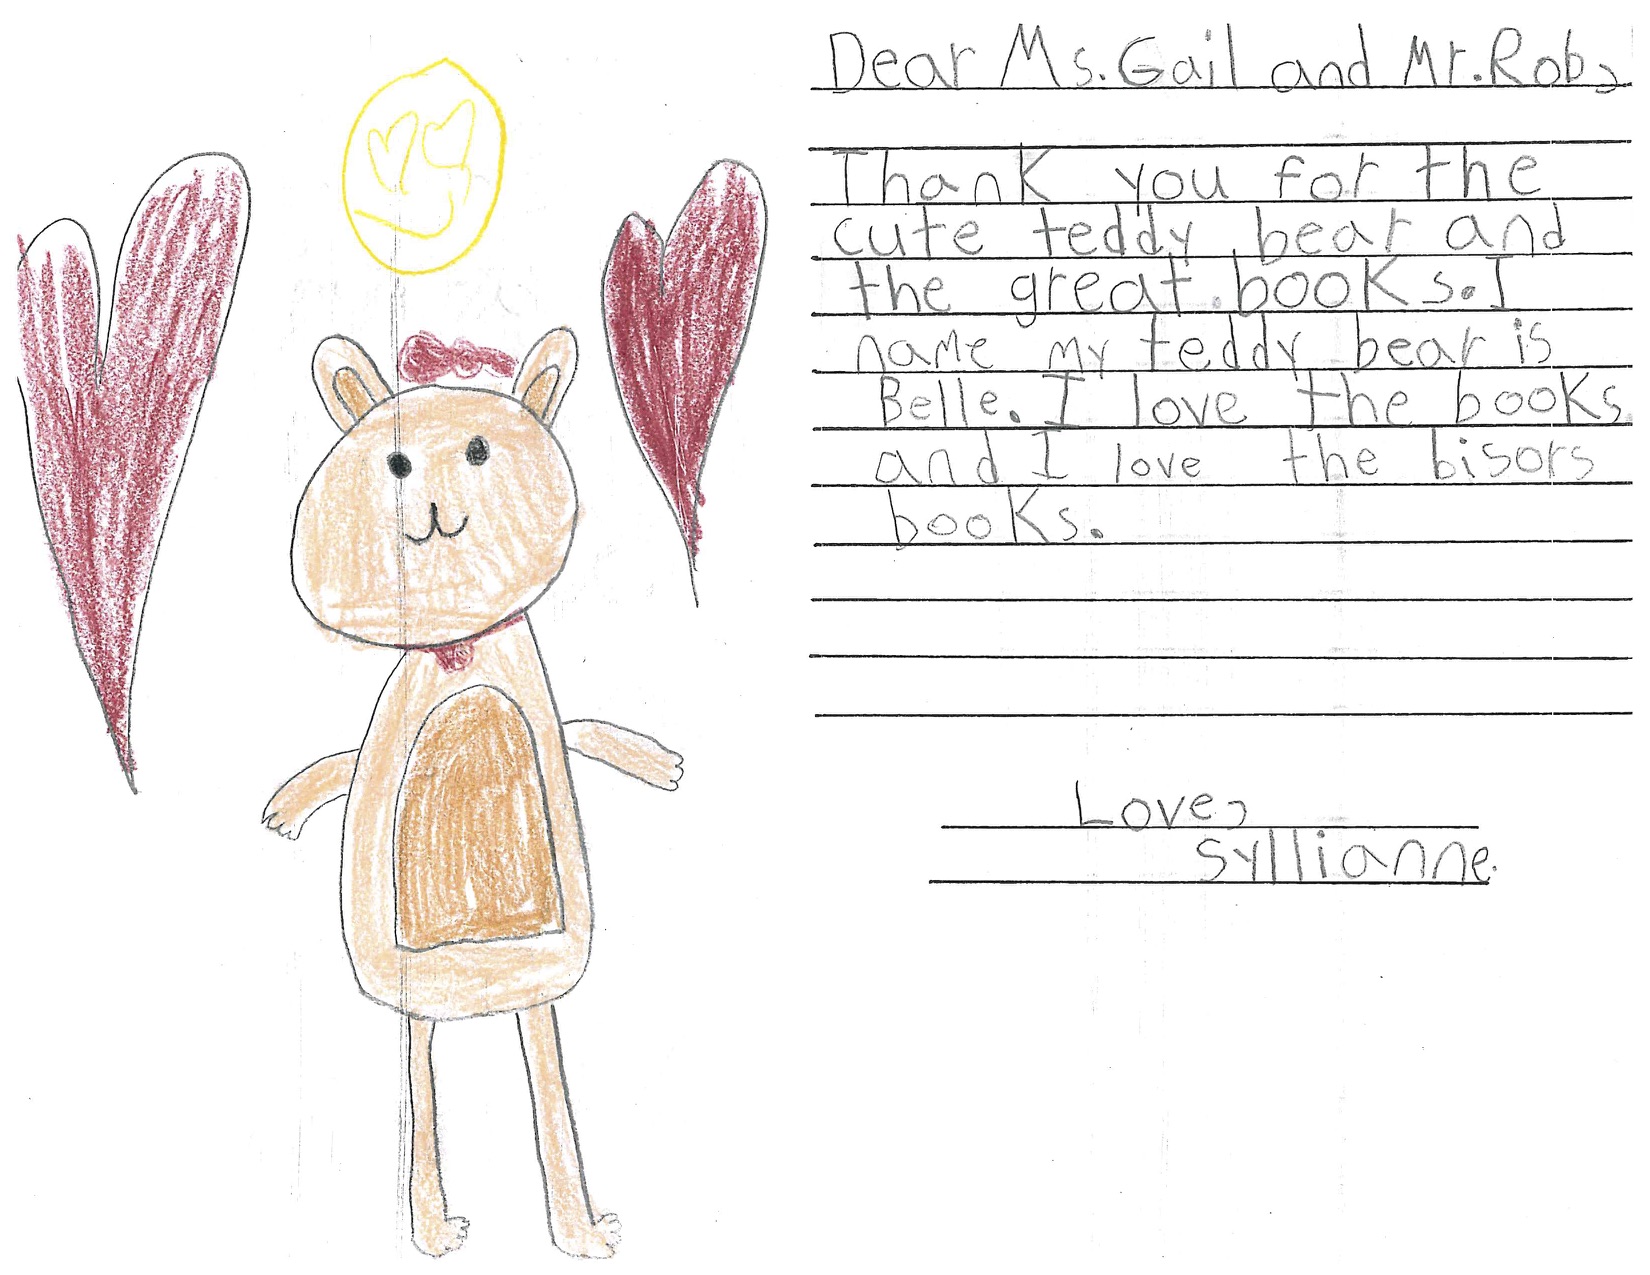 Dear Ms. Gail and Mr. Rob,
Thank you for the
cute teddy bear and
the great books. I
name my teddy bear is
Belle. I love the books
and I love the bisors
books.
Love,
Syllianne.